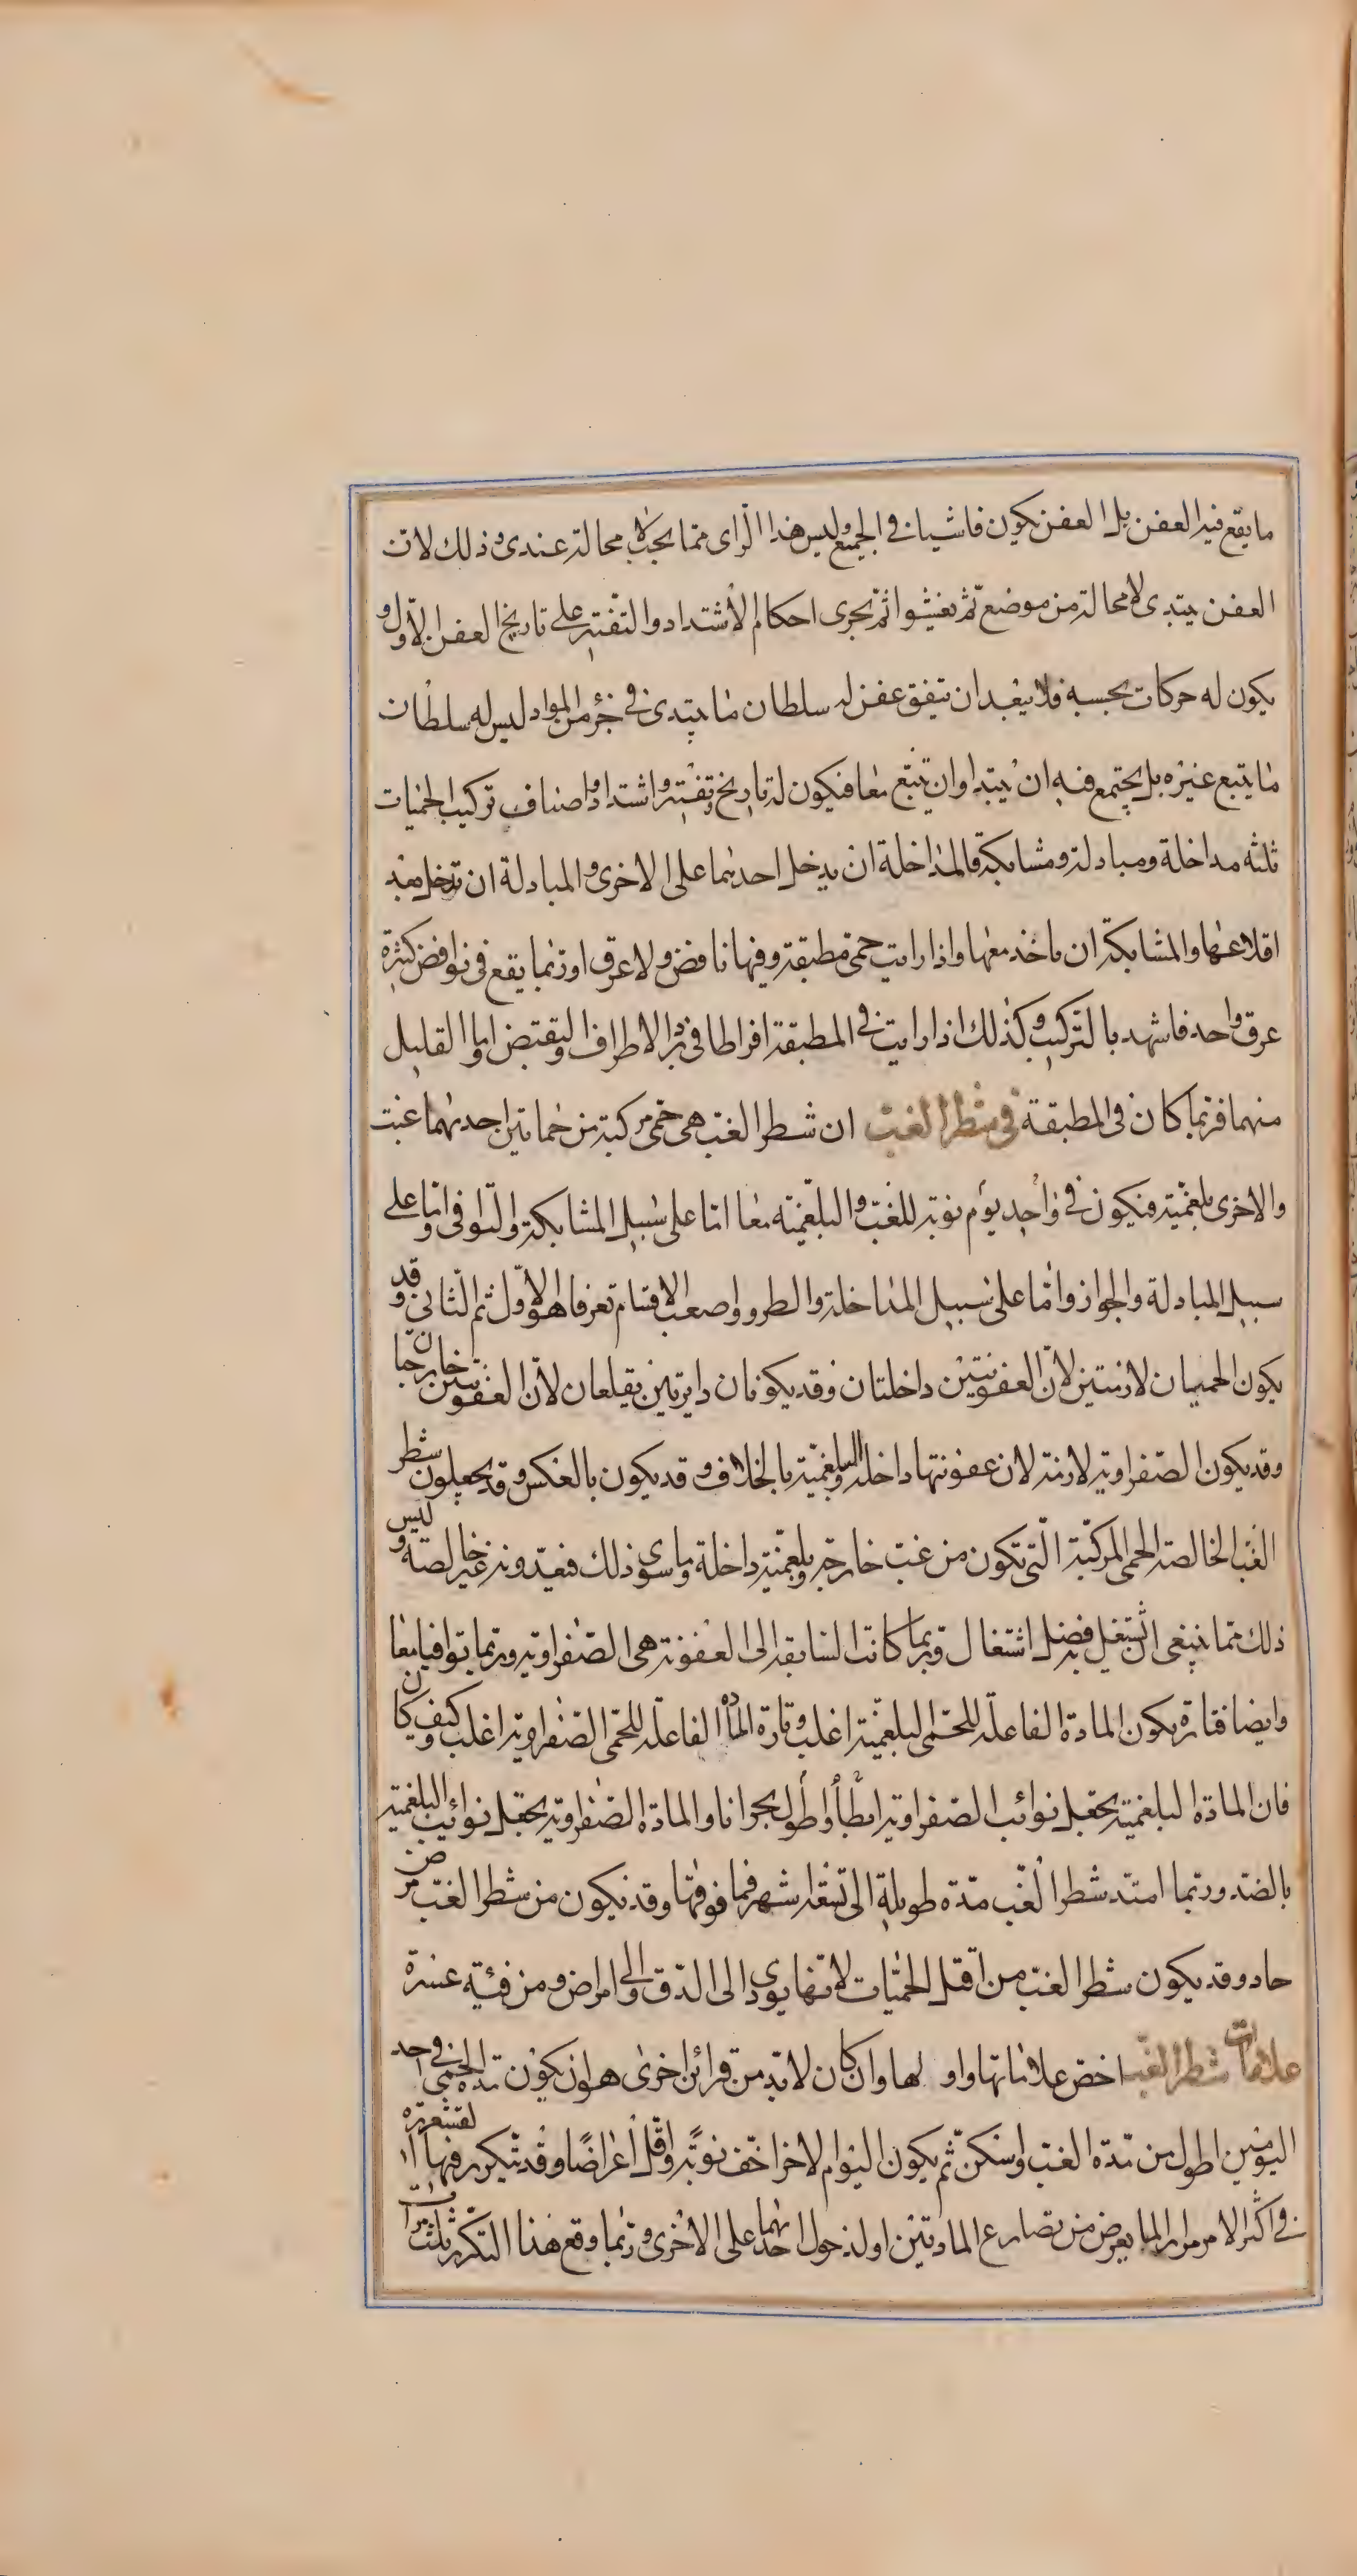 ما يقع فيه العفن بل العفن يكون فاشيا في الجميع وليس هذا الراى مما يجب لا محالة عندى وذلك لان
العفن يبتدى لا محالة من موضع ثم يفشوا ثم يجرى احكام الاشتداد والتفتير على تاريخ العفن الاول و
يكون له حركات بحسبه فلا يبعد ان يتفق عفن له سلطان ما يبتدى في جزء من المواد ليس له سلطان
ما يتبع غيره بل يجتمع فيه ان يبتدا وان يتبع معا فيكون له تاريخ وتفتير واشتداد واصناف تركيب الحميات
ثلثه مداخلة ومبادلة ومشابكة فالمداخلة ان يدخل احديهما على الاخرى والمبادلة ان تدخل بعد
اقلاعها والمشابكة ان ماخذ معها واذا رايت حمى مطبقة وفيها نافض ولا عرق اوربما يقع في نوافض كثيرة
عرق واحد فاشهد بالتركيب وكذلك اذا رايت في المطبقة افراطا في برد الاطراف او تقبض واما القليل
منهما فربما كان في المطبقة في شطر الغب ان شطر الغب هى حمى مركبة من حماتين احديهما غب
والاخرى بلغمية فيكون في واحد يوم نوبة للغب والبلغمية معا اما على سبيل المشابكة والتوافى واما على
سبيل المبادلة والجواز واما على سبيل المداخلة والطرو واصعب الاقسام تعرفا هو الاول ثم الثانى وقد
يكون الحميان لازمتين لان العفونتين داخلتان وقد يكونان دايرتين يقلعان لان العفونتين خارجتان
وقد يكون الصفراوية لازمة لان عفونتها داخلة والبلغمية بالخلاف وقد يكون بالعكس وقد يجعلون شطر
الغب الخالصة الحمى المركبة التى تكون من غب خارجة وبلغمية داخلة وما سوى ذلك فيعدونه غير خالصة وليس
ذلك مما ينبغى ان يشتغل به فضل اشتغال وربما كانت السابقة الى العفونة هى الصفراوية وربما توافيا معا
وايضا فتارة يكون المادة الفاعلة للحمى البلغمية اغلب وتارة المادة الفاعلة للحمى الصفراوية اغلب وكيف كان
فان المادة البلغمية يجعل نوائب الصفراوية ابطأ واطول بحرانا والمادة الصفراوية يجعل نوائب البلغمية
بالضد وربما امتد شطر الغب مدة طويلة الى تسعة اشهر فما فوقها وقد يكون من شطر الغب مرض
حاد وقد يكون شطر الغب من اقتل الحميات لانها يودى الى الدق والى امراض ومن فيئة عسرة
علامات شطر الغب اخص علاماتها واولها وان كان لا بد من قرائن اخرى هو ان يكون مدة الحمى في احد
اليومين اطول من مدة الغب واسكن ثم يكون اليوم الاخر اخف نوبة واقل اعراضا وقد يتكرر فيها القشعريرة
في اكثر الامر مرارا لما يعرض من تصارع المادتين اولدخول احديهما على الاخرى وربما وقع هذا التكرر ثلث مرات